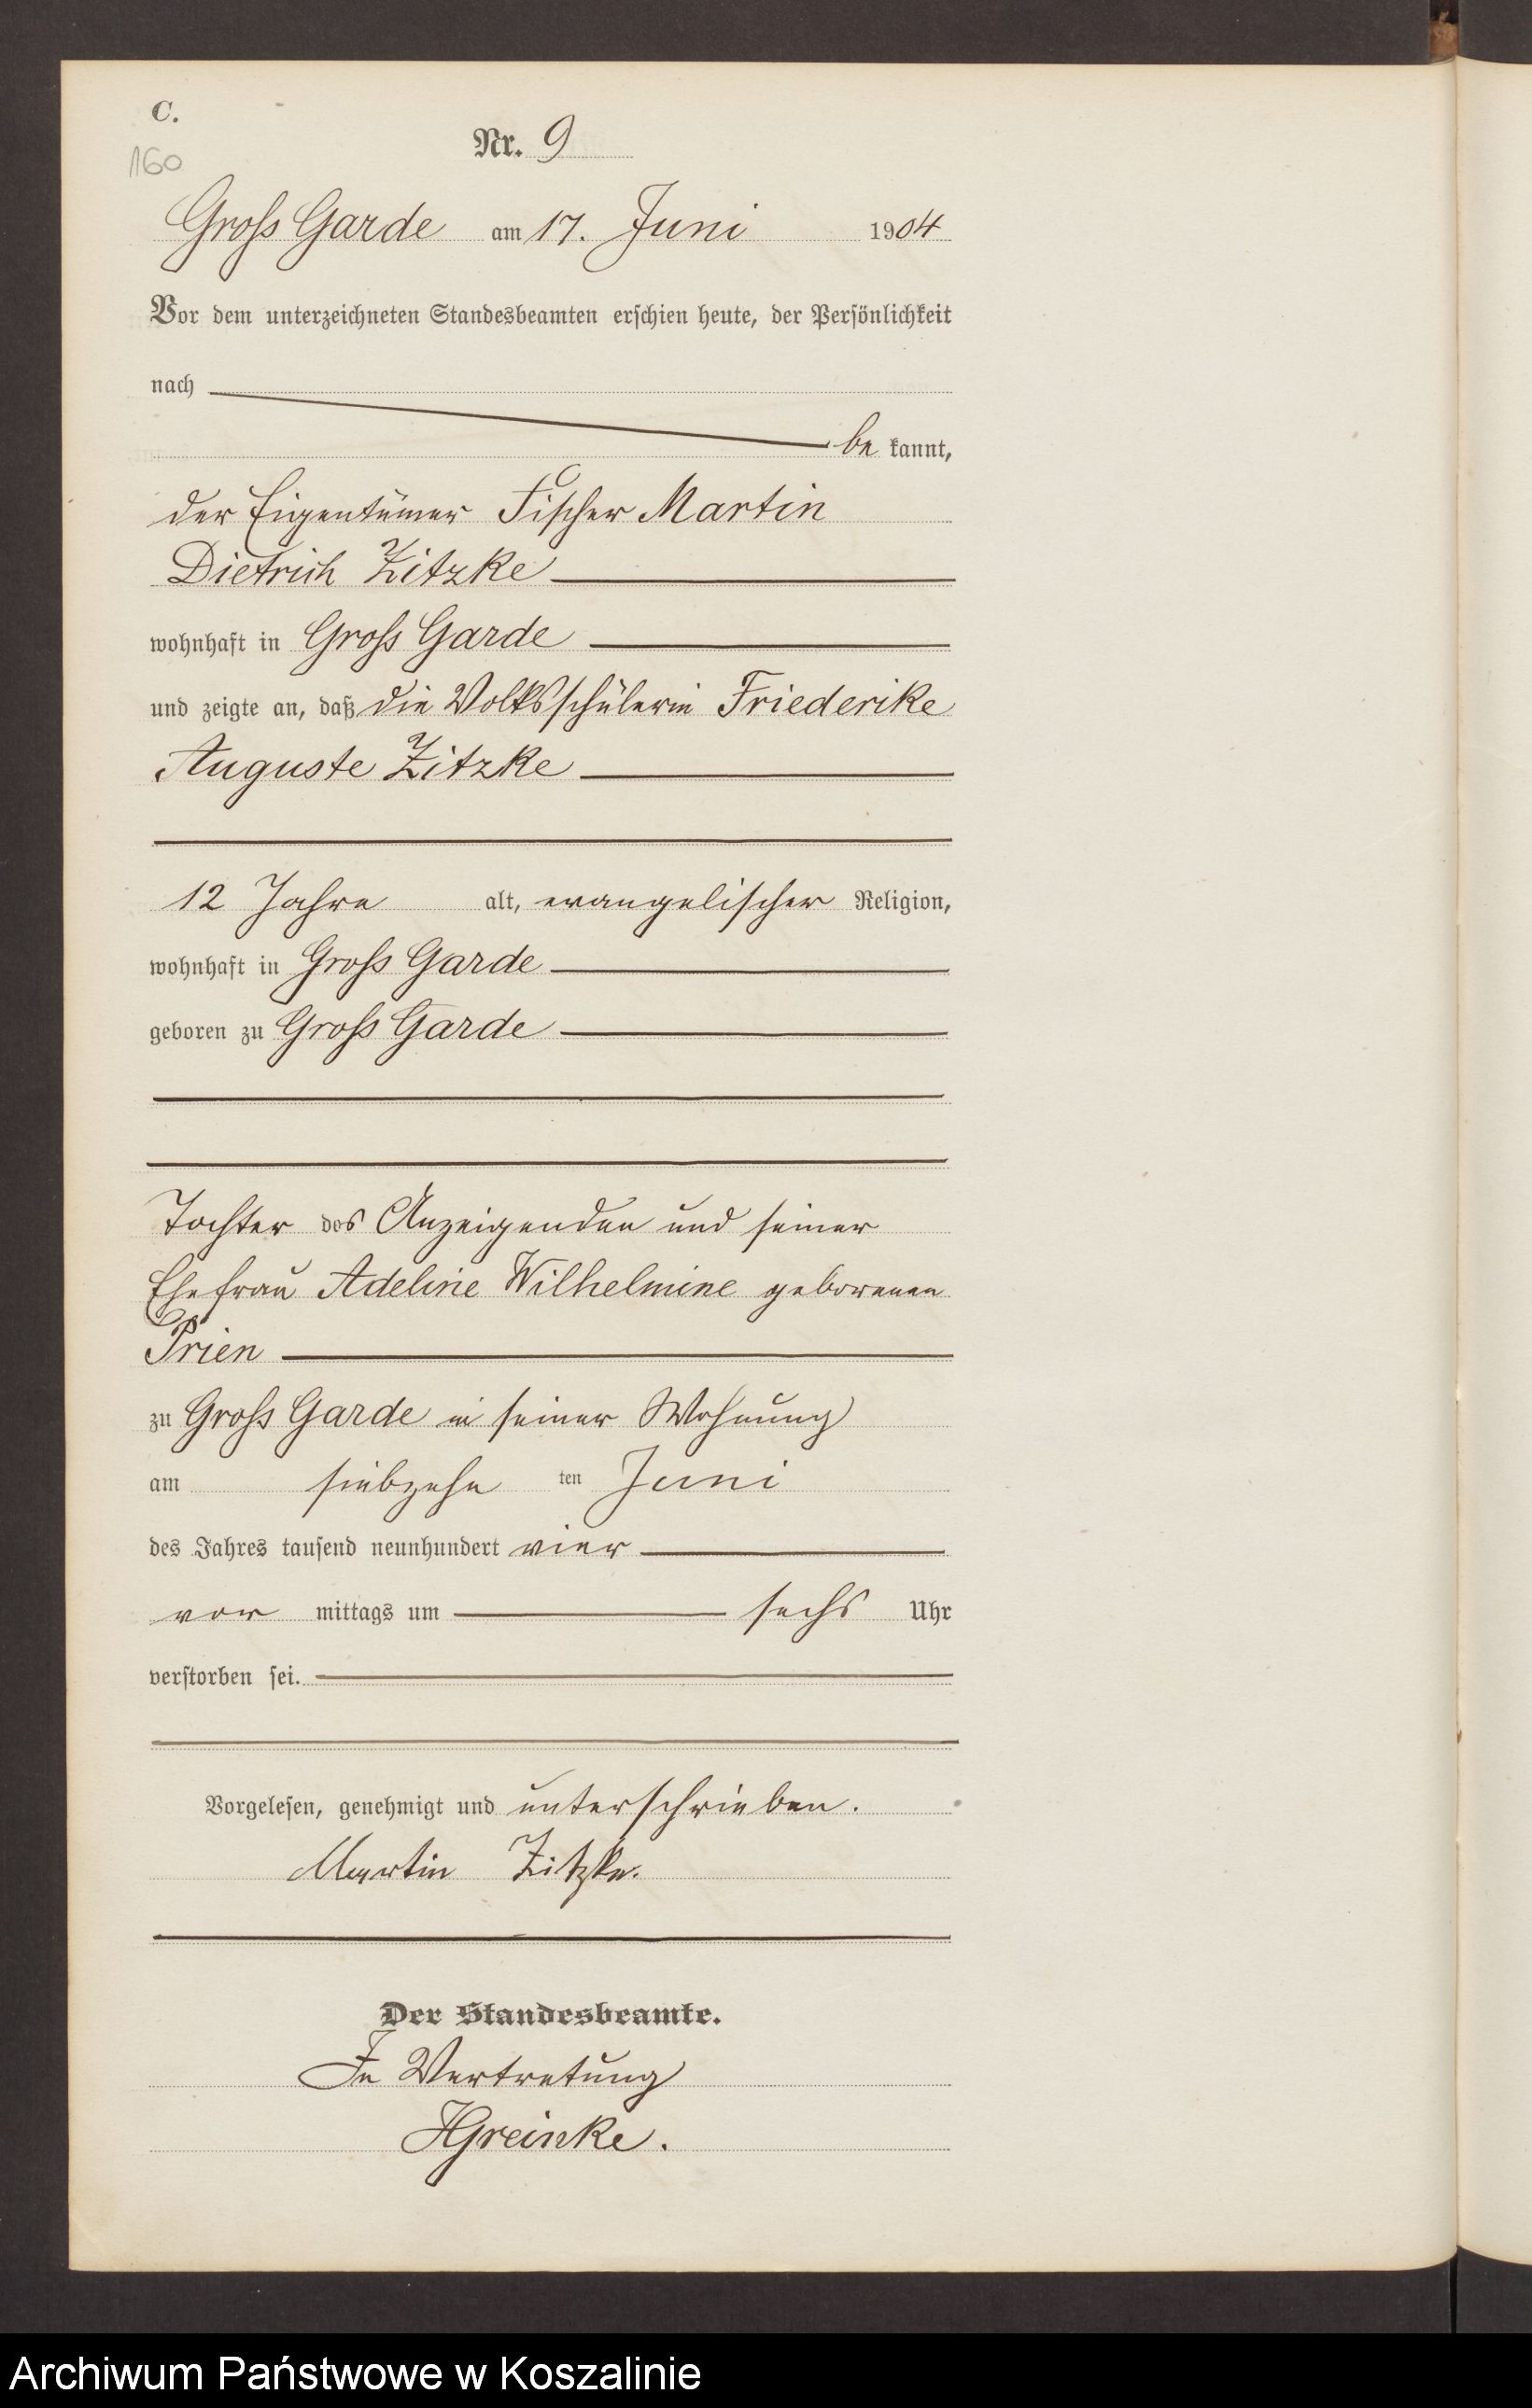 C.
160
Nr. 9
Gross Garde am 17. Juni 1904
Vor dem unterzeichneten Standesbeamten erschien heute, der Persönlichkeit
nach
be kannt,
der Eigentümer Fischer Martin
Dietrich Zitzke
wohnhaft in Gross Garde
und zeigte an, daß die Volksschülerin Friederike
Auguste Zitzke
12 Jahre alt, evangelischer Religion,
wohnhaft in Gross Garde
geboren zu Gross Garde
Tochter des Anzeigenden und seiner
Ehefrau Adeline Wilhelmine geborenen
Prien
zu Gross Garde in seiner Wohnung
am siebzehn ten Juni
des Jahres tausend neunhundert vier
vor mittags um sechs Uhr
verstorben sei.
Vorgelesen, genehmigt und unterschrieben.
Martin Zitzke.
Der Standesbeamte.
In Vertretung
HGreinke.
Archiwum Państwowe w Koszalinie